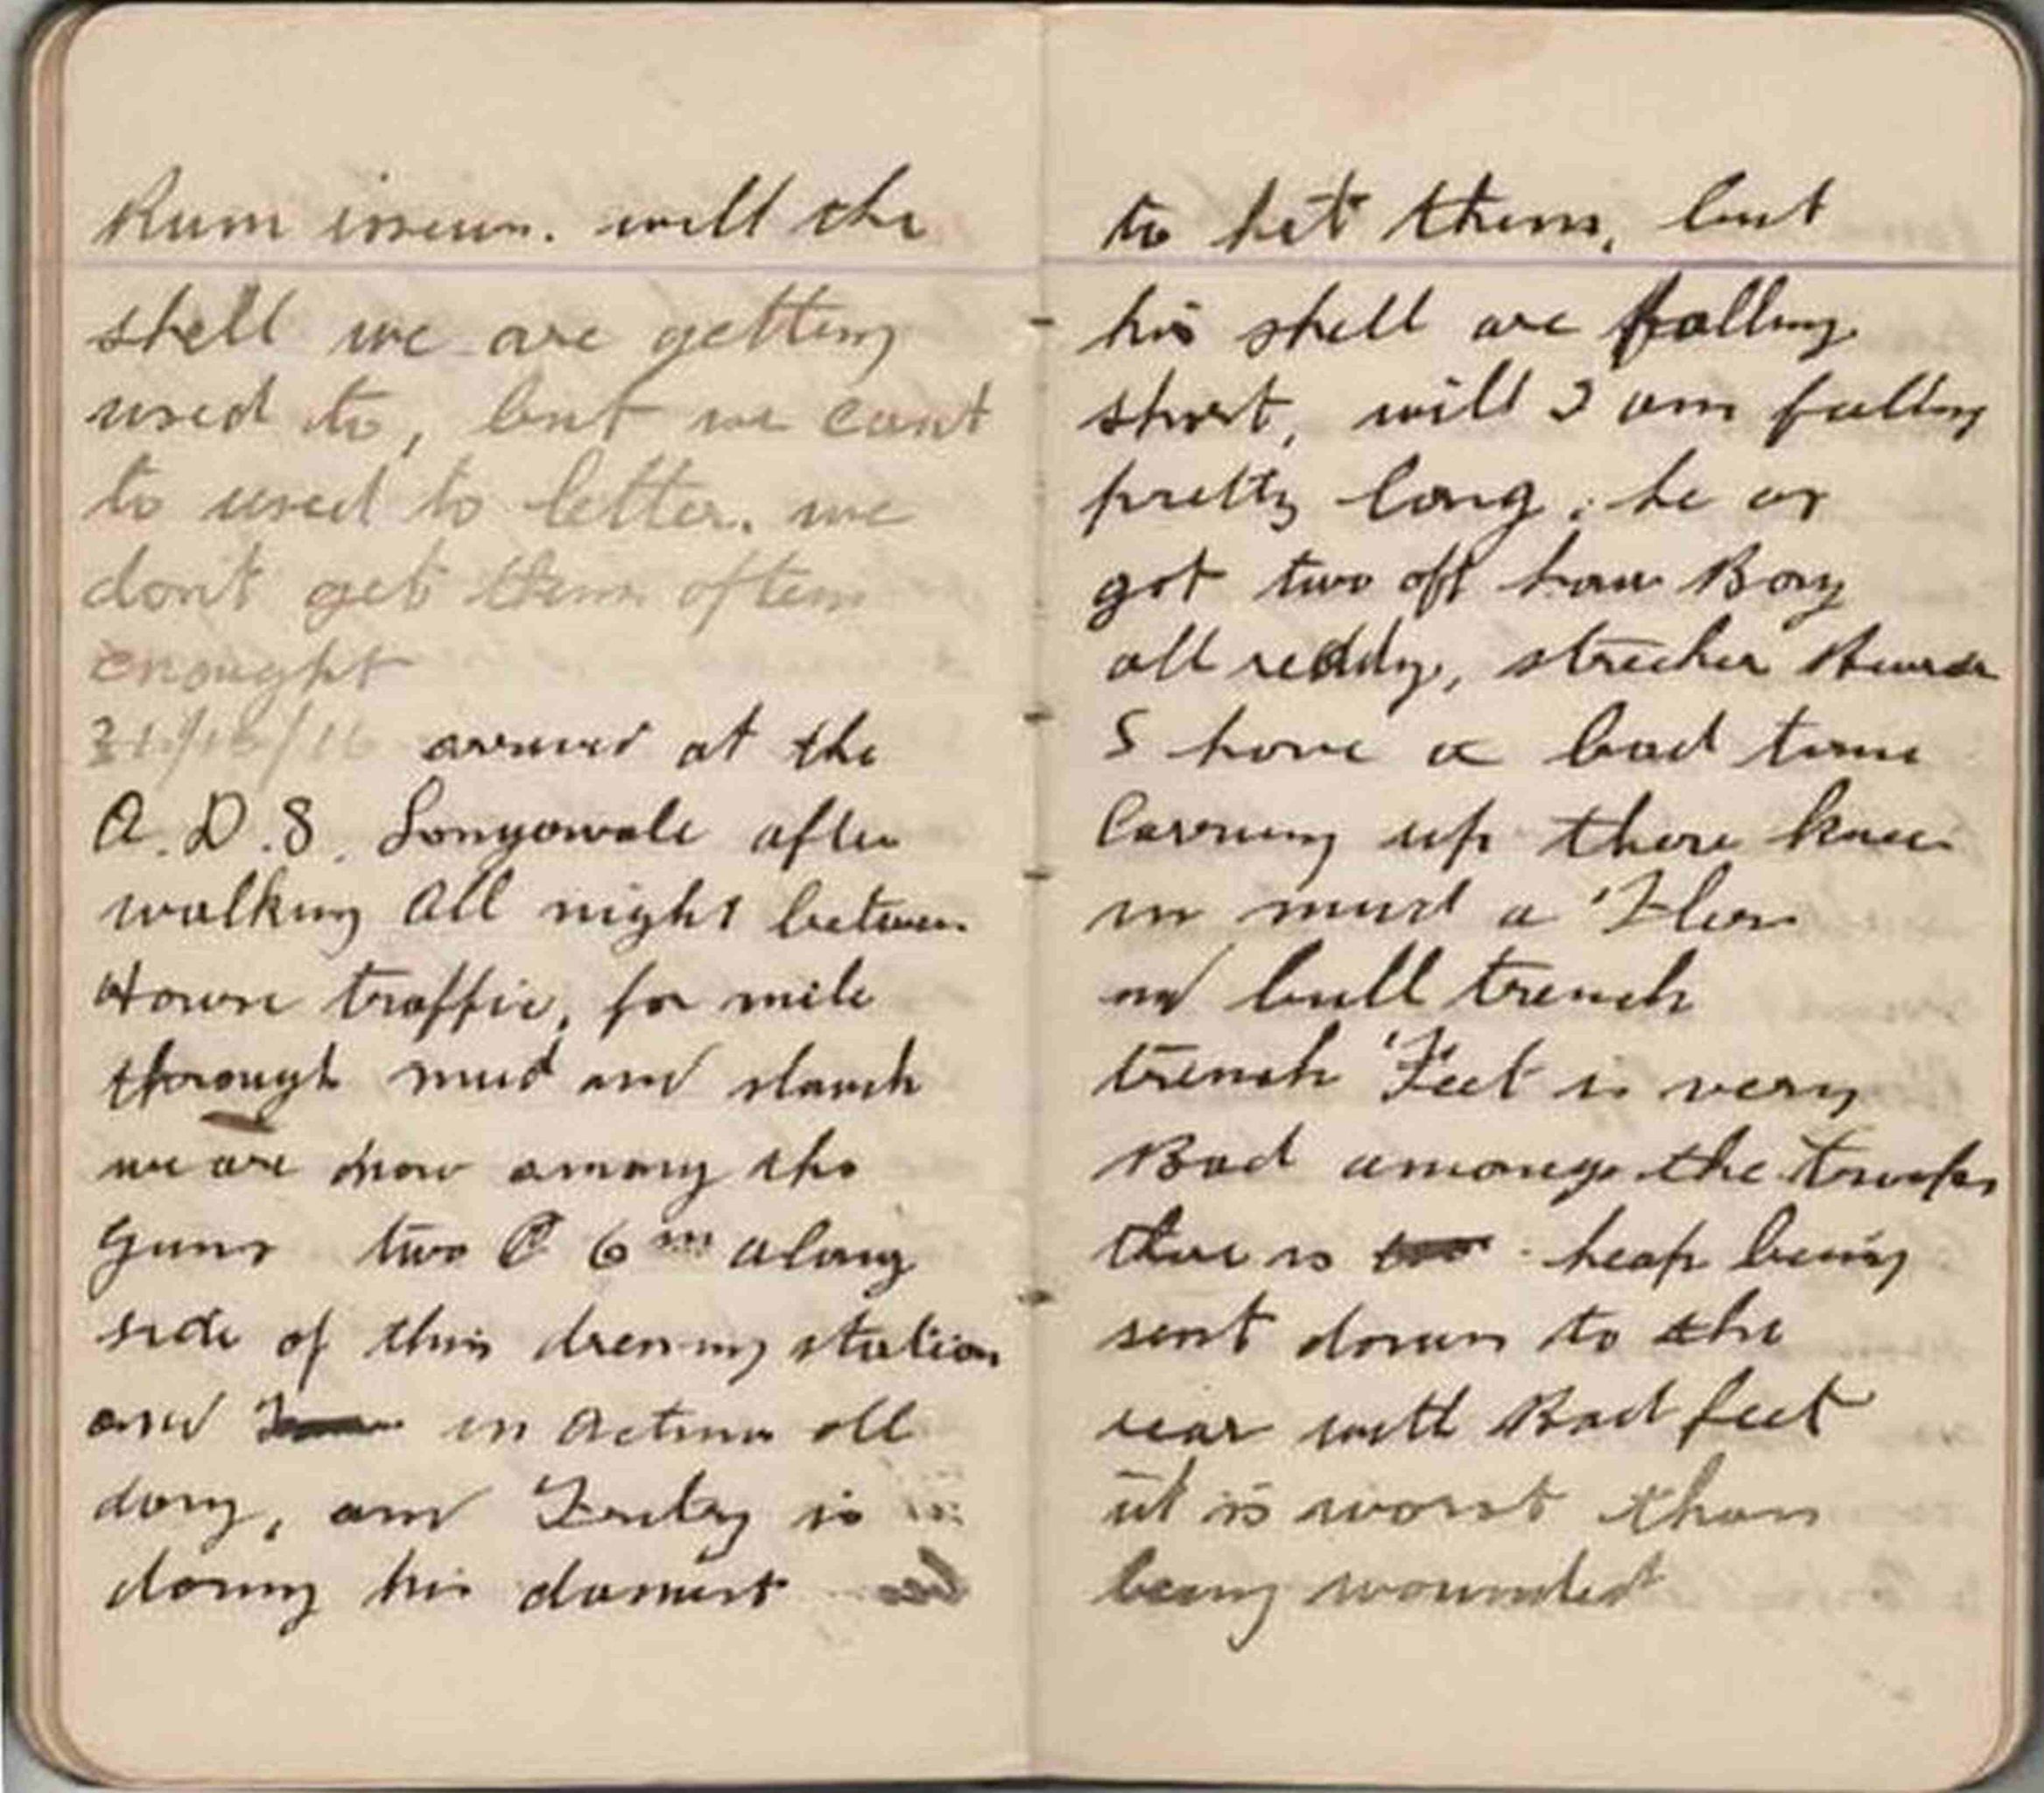 Rum issue. will the
shell we are getting
used to, but we cant
to used to letter. we
don't get them often
enought
at the
A.D.S. after
walking all night between
traffic, for mile
through mud and
we are now among the
guns two 6 in along
side of this dressing station
and in action all
day, and is
doing his damest
to het them, but
his shell are falling
short, will I am falling
pretty long, he as
got two off Boy
all reddy, strecher Bearer
S have a bad time
Carring up there knee
in mud a Fler
and bull trench
trench Feet is very
Bad among the troops
there is heap being
sent down to the
rear with Bad feet
it is worst than
being wounded